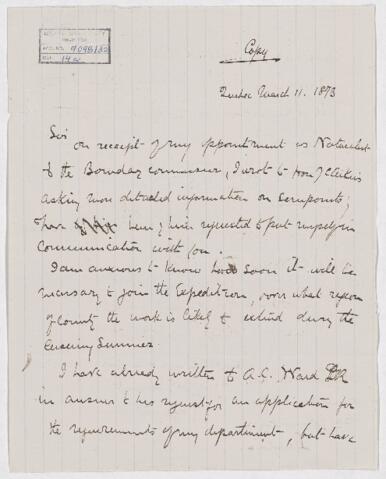 Copy
Quebec March 11. 1873
Sir
on receipt of my appointment as Naturalist
to the Boundary commission, I wrote to
asking more detailed information on some points,
have been requested to put myself in
Communication with you.
I am anxious to know how soon it will be
necessary to join the Expedition, over what region
of country the work is likely to extend during the
Ensuing Summer.
I have already written to A.C. Ward
in answer to his request for an application for
the requirements of my department, but have